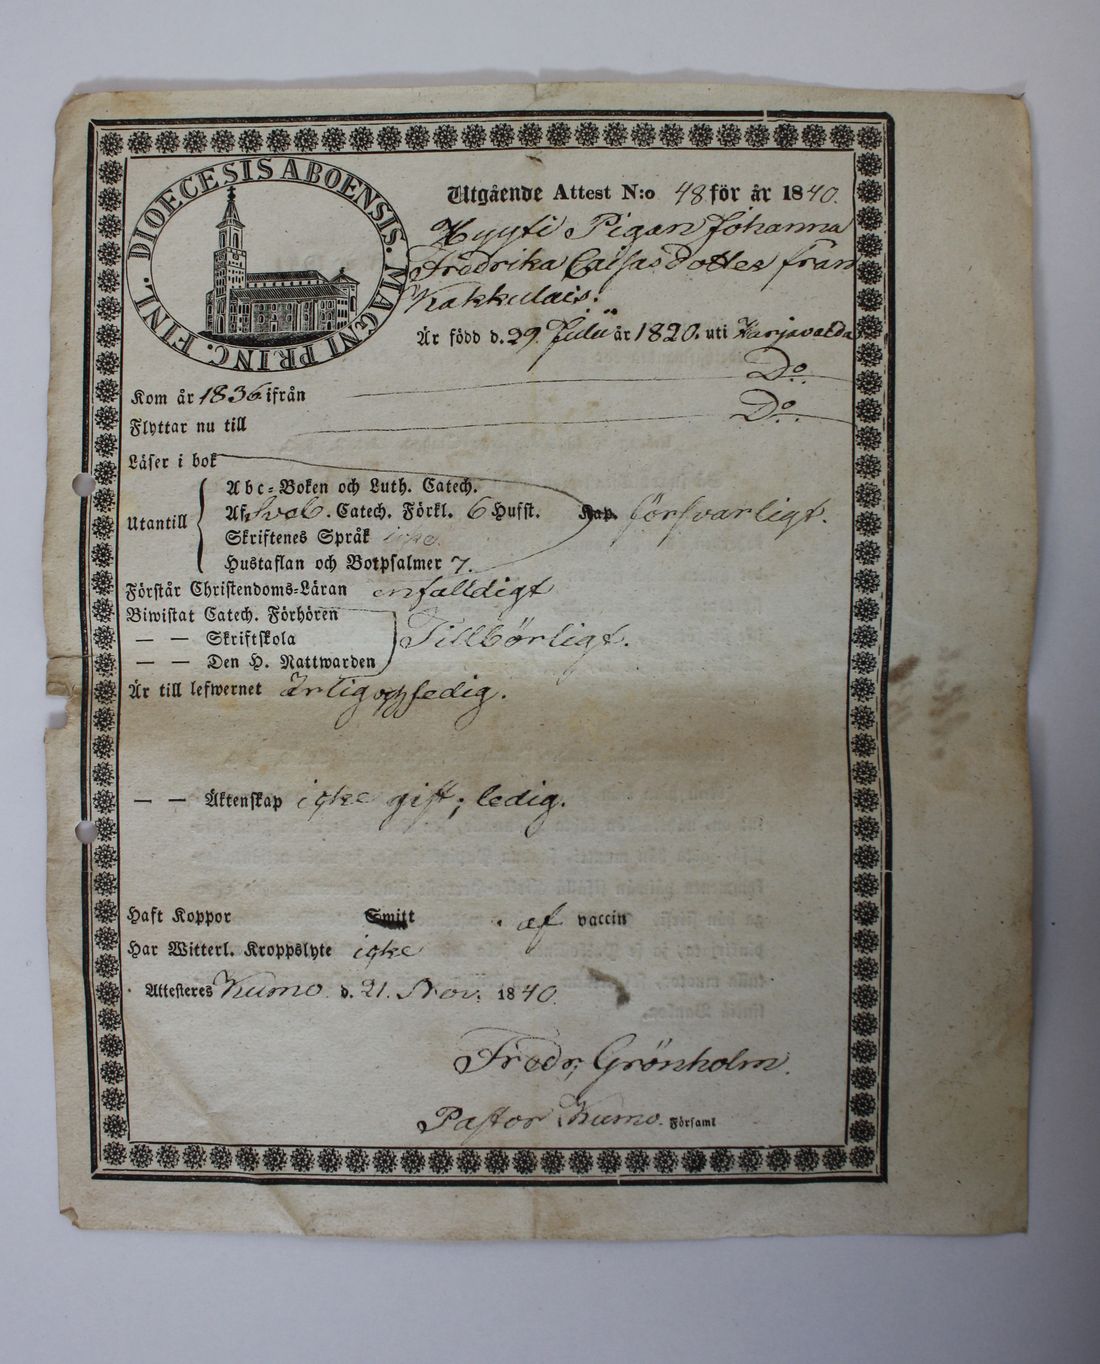 DIOECESIS ABOENSIS. MAGNI PRINC. FINL.
Utgående Attest N:o 48 för år 1840.
Pigan Johanna
Fredrika Caisasdotter från
Kakkulais.
Är född d. 29. Julii år 1820. uti
Kom år 1836 ifrån Do.
Flyttar nu till Do.
Läser i bok
Abc-Boken och Luth. Catech.
Utantill Af Sveb. Catech. Förkl. 6 Hufst. Kap. försvarligt.
Skriftenes Språk
Hustaflan och Botpsalmer 7.
Förstår Christendoms-Läran enfalldigt
Biwistat Catech. Förhören
— — Skriftskola Tillbörligt.
— — Den H. Nattwarden
Är till lefwernet ärlig och sedig.
— — Äktenskap icke gift; ledig.
Haft Koppor Smitt . af vaccin
Har Witterl. Kroppslyte icke
Attesteres Kumo d. 21. Nov. 1840.
Fredr. Grönholm.
Pastor Kumo. Församl